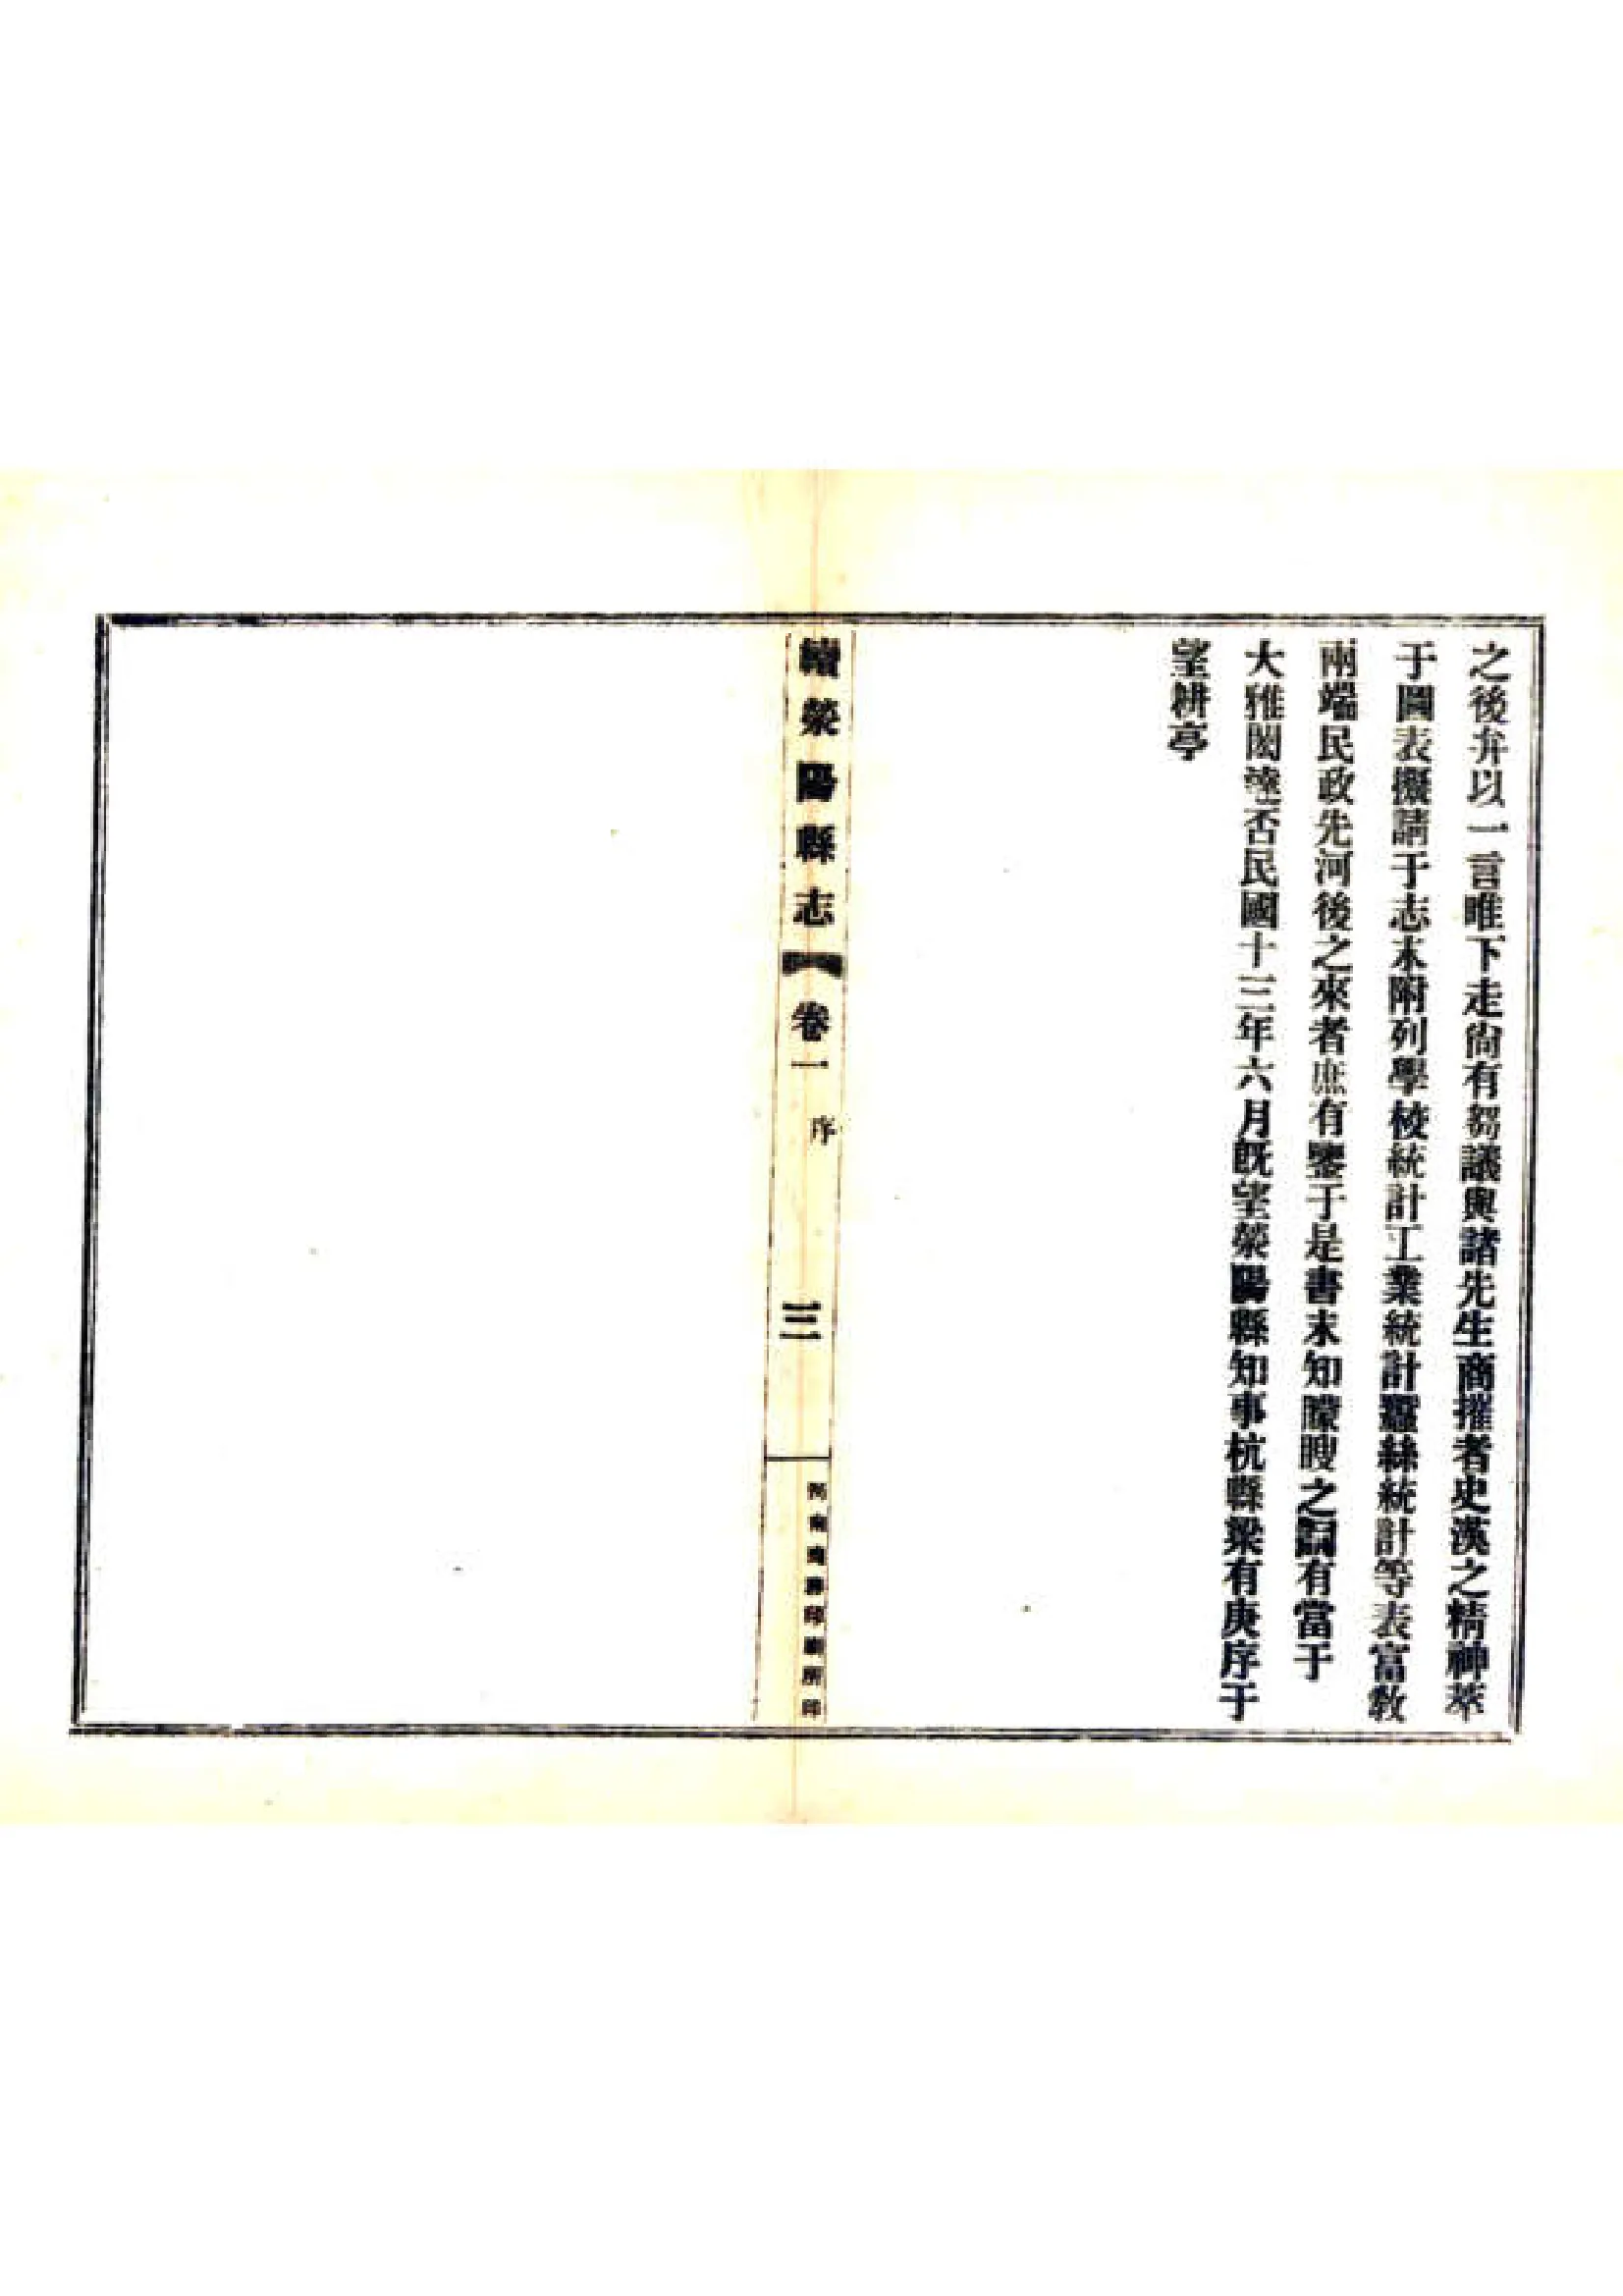 之後弁以一言唯下走尙有芻議與諸先生商搉者史漢之精神萃
于圖表擬請于志末附列學校統計工業統計蠶絲統計等表富敎
兩端民政先河後之來者庶有鑒于是書末知矇瞍之詞有當于
大雅閎達否民國十三年六月旣望滎陽縣知事杭縣梁有庚序于
望耕亭
續滎陽縣志 卷一 序 三
印刷所印